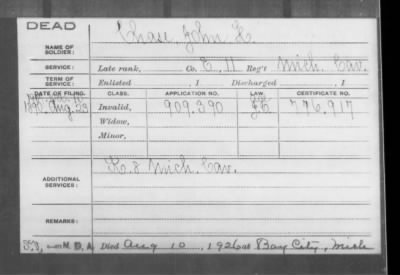 DEAD
NAME OF SOLDIER: Chase, John H
SERVICE: Late rank, Co. E, 11 Reg't Mich. Cav.
TERM OF SERVICE: Enlisted , 1 Discharged , 1
DATE OF FILING. CLASS. APPLICATION NO. LAW. CERTIFICATE NO.
1890, Aug. 23 Invalid, 909.390 776.917
Widow,
Minor,
ADDITIONAL SERVICES: K. 8 Mich. Cav.
REMARKS:
M. B. A. Died Aug 10, 1926 at Bay City, Mich